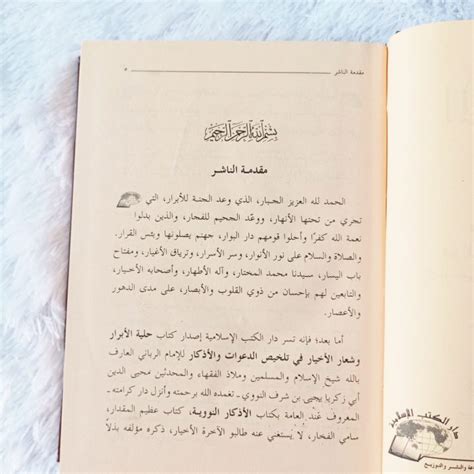 مقدمة الناشر
٥
بسم الله الرحمن الرحيم
مقدمة الناشر
الحمد لله العزيز الجبار، الذي وعد الجنة للأبرار، التي
تجري من تحتها الأنهار، ووعّد الجحيم للفجار، والذين بدلوا
نعمة الله كفرًا وأحلوا قومهم دار البوار، جهنم يصلونها وبئس القرار.
والصلاة والسلام على نور الأنوار، وسر الأسرار، وترياق الأغيار، ومفتاح
باب اليسار، سيدنا محمد المختار، وآله الأطهار، وأصحابه الأخيار،
والتابعين لهم بإحسان من ذوي القلوب والأبصار، على مدى الدهور
والأعصار.
أما بعد؛ فإنه تسر دار الكتب الإسلامية إصدار كتاب حلية الأبرار
وشعار الأخيار في تلخيص الدعوات والأذكار للإمام الرباني العارف
بالله شيخ الإسلام والمسلمين وملاذ الفقهاء والمحدثين محيي الدين
أبي زكريا يحيى بن شرف النووي - تغمده الله برحمته وأنزل دار كرامته -
المعروف عند العامة بكتاب الأذكار النووية، كتاب عظيم المقدار،
سامي الفخار، لا يستغني عنه طالبو الآخرة الأخيار، ذكره مؤلفه بدلا
دار الكتب الإسلامية
والنشر والتوزيع